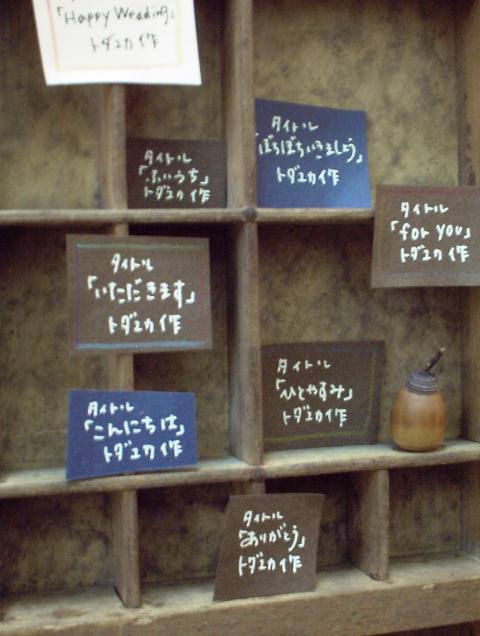 「Happy Wedding」
トダユカ作
タイトル
「ふいうち」
トダユカ作
タイトル
「ぼちぼちいきましょう」
トダユカ作
タイトル
「for you」
トダユカ作
タイトル
「いただきます」
トダユカ作
タイトル
「ひとやすみ」
トダユカ作
タイトル
「こんにちは」
トダユカ作
タイトル
「ありがとう」
トダユカ作